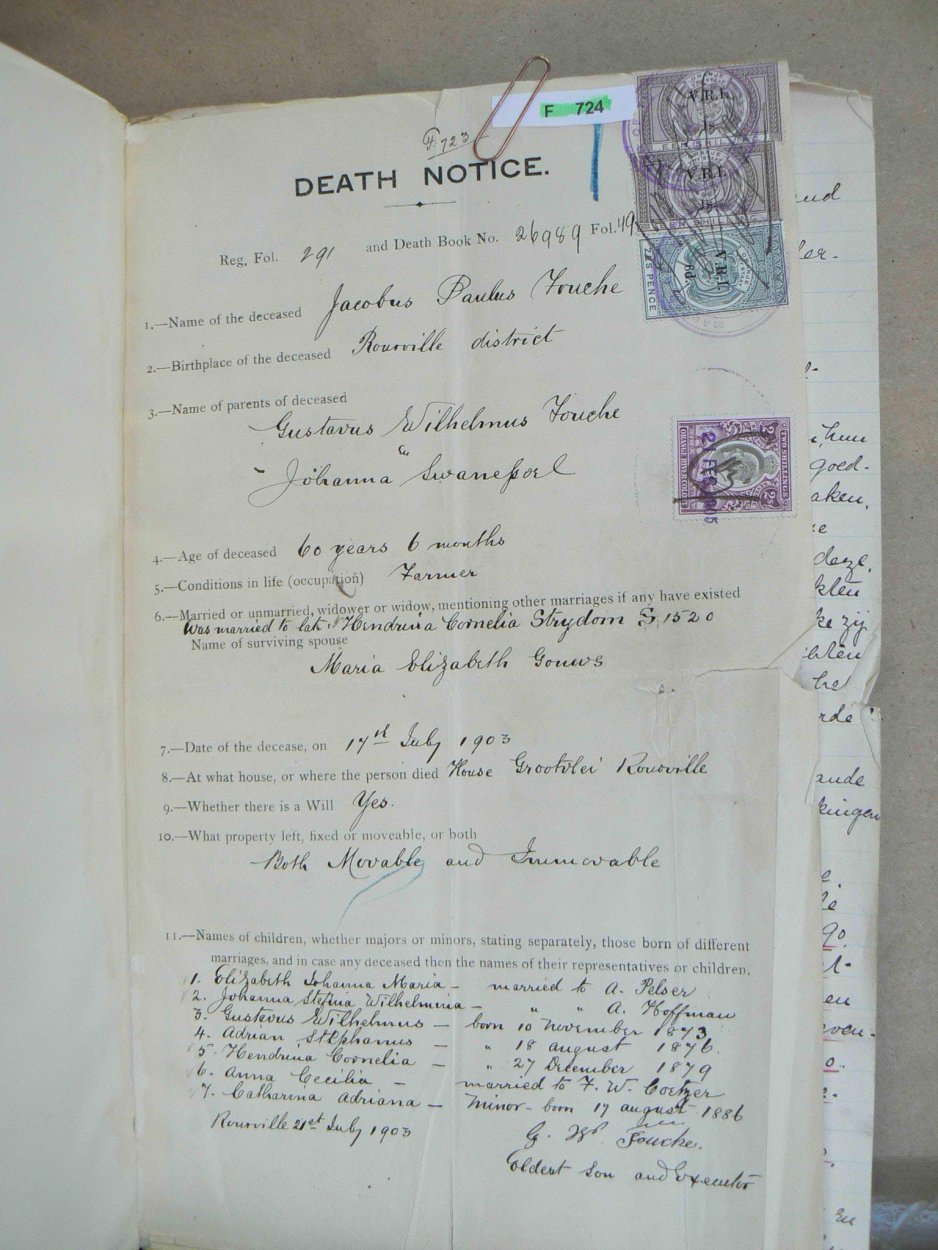 F 724
F. 723
DEATH NOTICE.
Reg. Fol. 291 and Death Book No. 26989 Fol. 49
1.—Name of the deceased Jacobus Paulus Fouche
2.—Birthplace of the deceased Rouxville district
3.—Name of parents of deceased
Gustavus Wilhelmus Fouche
en
Johanna Swanepoel
4.—Age of deceased 60 years 6 months
5.—Conditions in life (occupation) Farmer
6.—Married or unmarried, widower or widow, mentioning other marriages if any have existed
Was married to late Hendrina Cornelia Strydom S.1520
Name of surviving spouse
Maria Elizabeth Gouws
7.—Date of the decease, on 17th July 1903
8.—At what house, or where the person died House Grootvlei Rouxville
9.—Whether there is a Will Yes.
10.—What property left, fixed or moveable, or both
Both Movable and Immovable
11.—Names of children, whether majors or minors, stating separately, those born of different
marriages, and in case any deceased then the names of their representatives or children.
1. Elizabeth Johanna Maria – married to A. Pelser
2. Johanna Stefina Wilhelmina – " " A. Hoffman
3. Gustavus Wilhelmus – born 10 November 1873
4. Adrian Stephanus – " 18 august 1876.
5. Hendrina Cornelia – " 27 December 1879
6. Anna Cecilia – married to F. W. Coetzer
7. Catharina Adriana – Minor - born 17 august 1886
Rouxville 21st July 1903
G. Wl. Fouche.
Oldest son and Executor
V.R.I.
1s
V.R.I.
1s
V.R.I.
6d.
ZES PENCE
TWO SHILLINGS
2s
2s
2 FEB 1905
goed-
aken,
deze,
ke zij
kingen